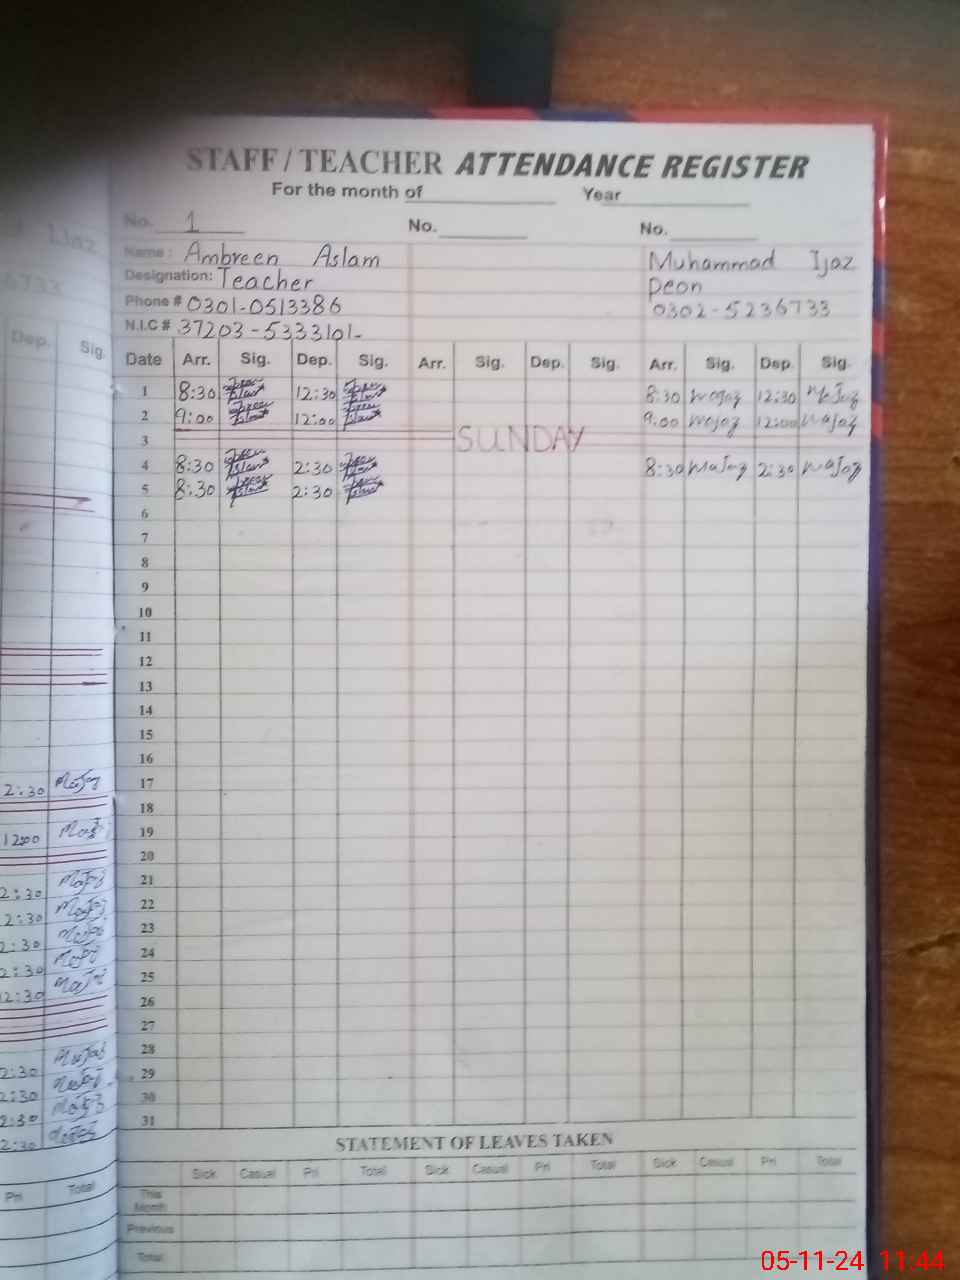 STAFF / TEACHER ATTENDANCE REGISTER
For the month of Year
No. 1 No. No.
Name : Ambreen Aslam Muhammad Ijaz
Designation: Teacher Peon
Phone # 0301-0513386 0302-5236733
N.I.C # 37203-5333101-
Date Arr. Sig. Dep. Sig. Arr. Sig. Dep. Sig. Arr. Sig. Dep. Sig.
1 8:30 12:30 8:30 12:30
2 9:00 12:00 9:00 12:00
3 SUNDAY
4 8:30 2:30 8:30 2:30
5 8:30 2:30
6
7
8
9
10
11
12
13
14
15
16
17
18
19
20
21
22
23
24
25
26
27
28
29
30
31
STATEMENT OF LEAVES TAKEN
Sick Casual Pri Total Sick Casual Pri Total Sick Casual Pri Total
This
Month
Previous
Total
Ijaz
6733
Dep. Sig.
2:30
12:00
2:30
2:30
2:30
2:30
12:30
2:30
2:30
2:30
2:30
Pri Total
05-11-24 11:44